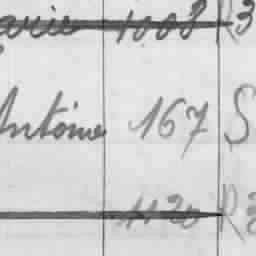 arie 1008 R3
Antoine 167 S
1120 R3